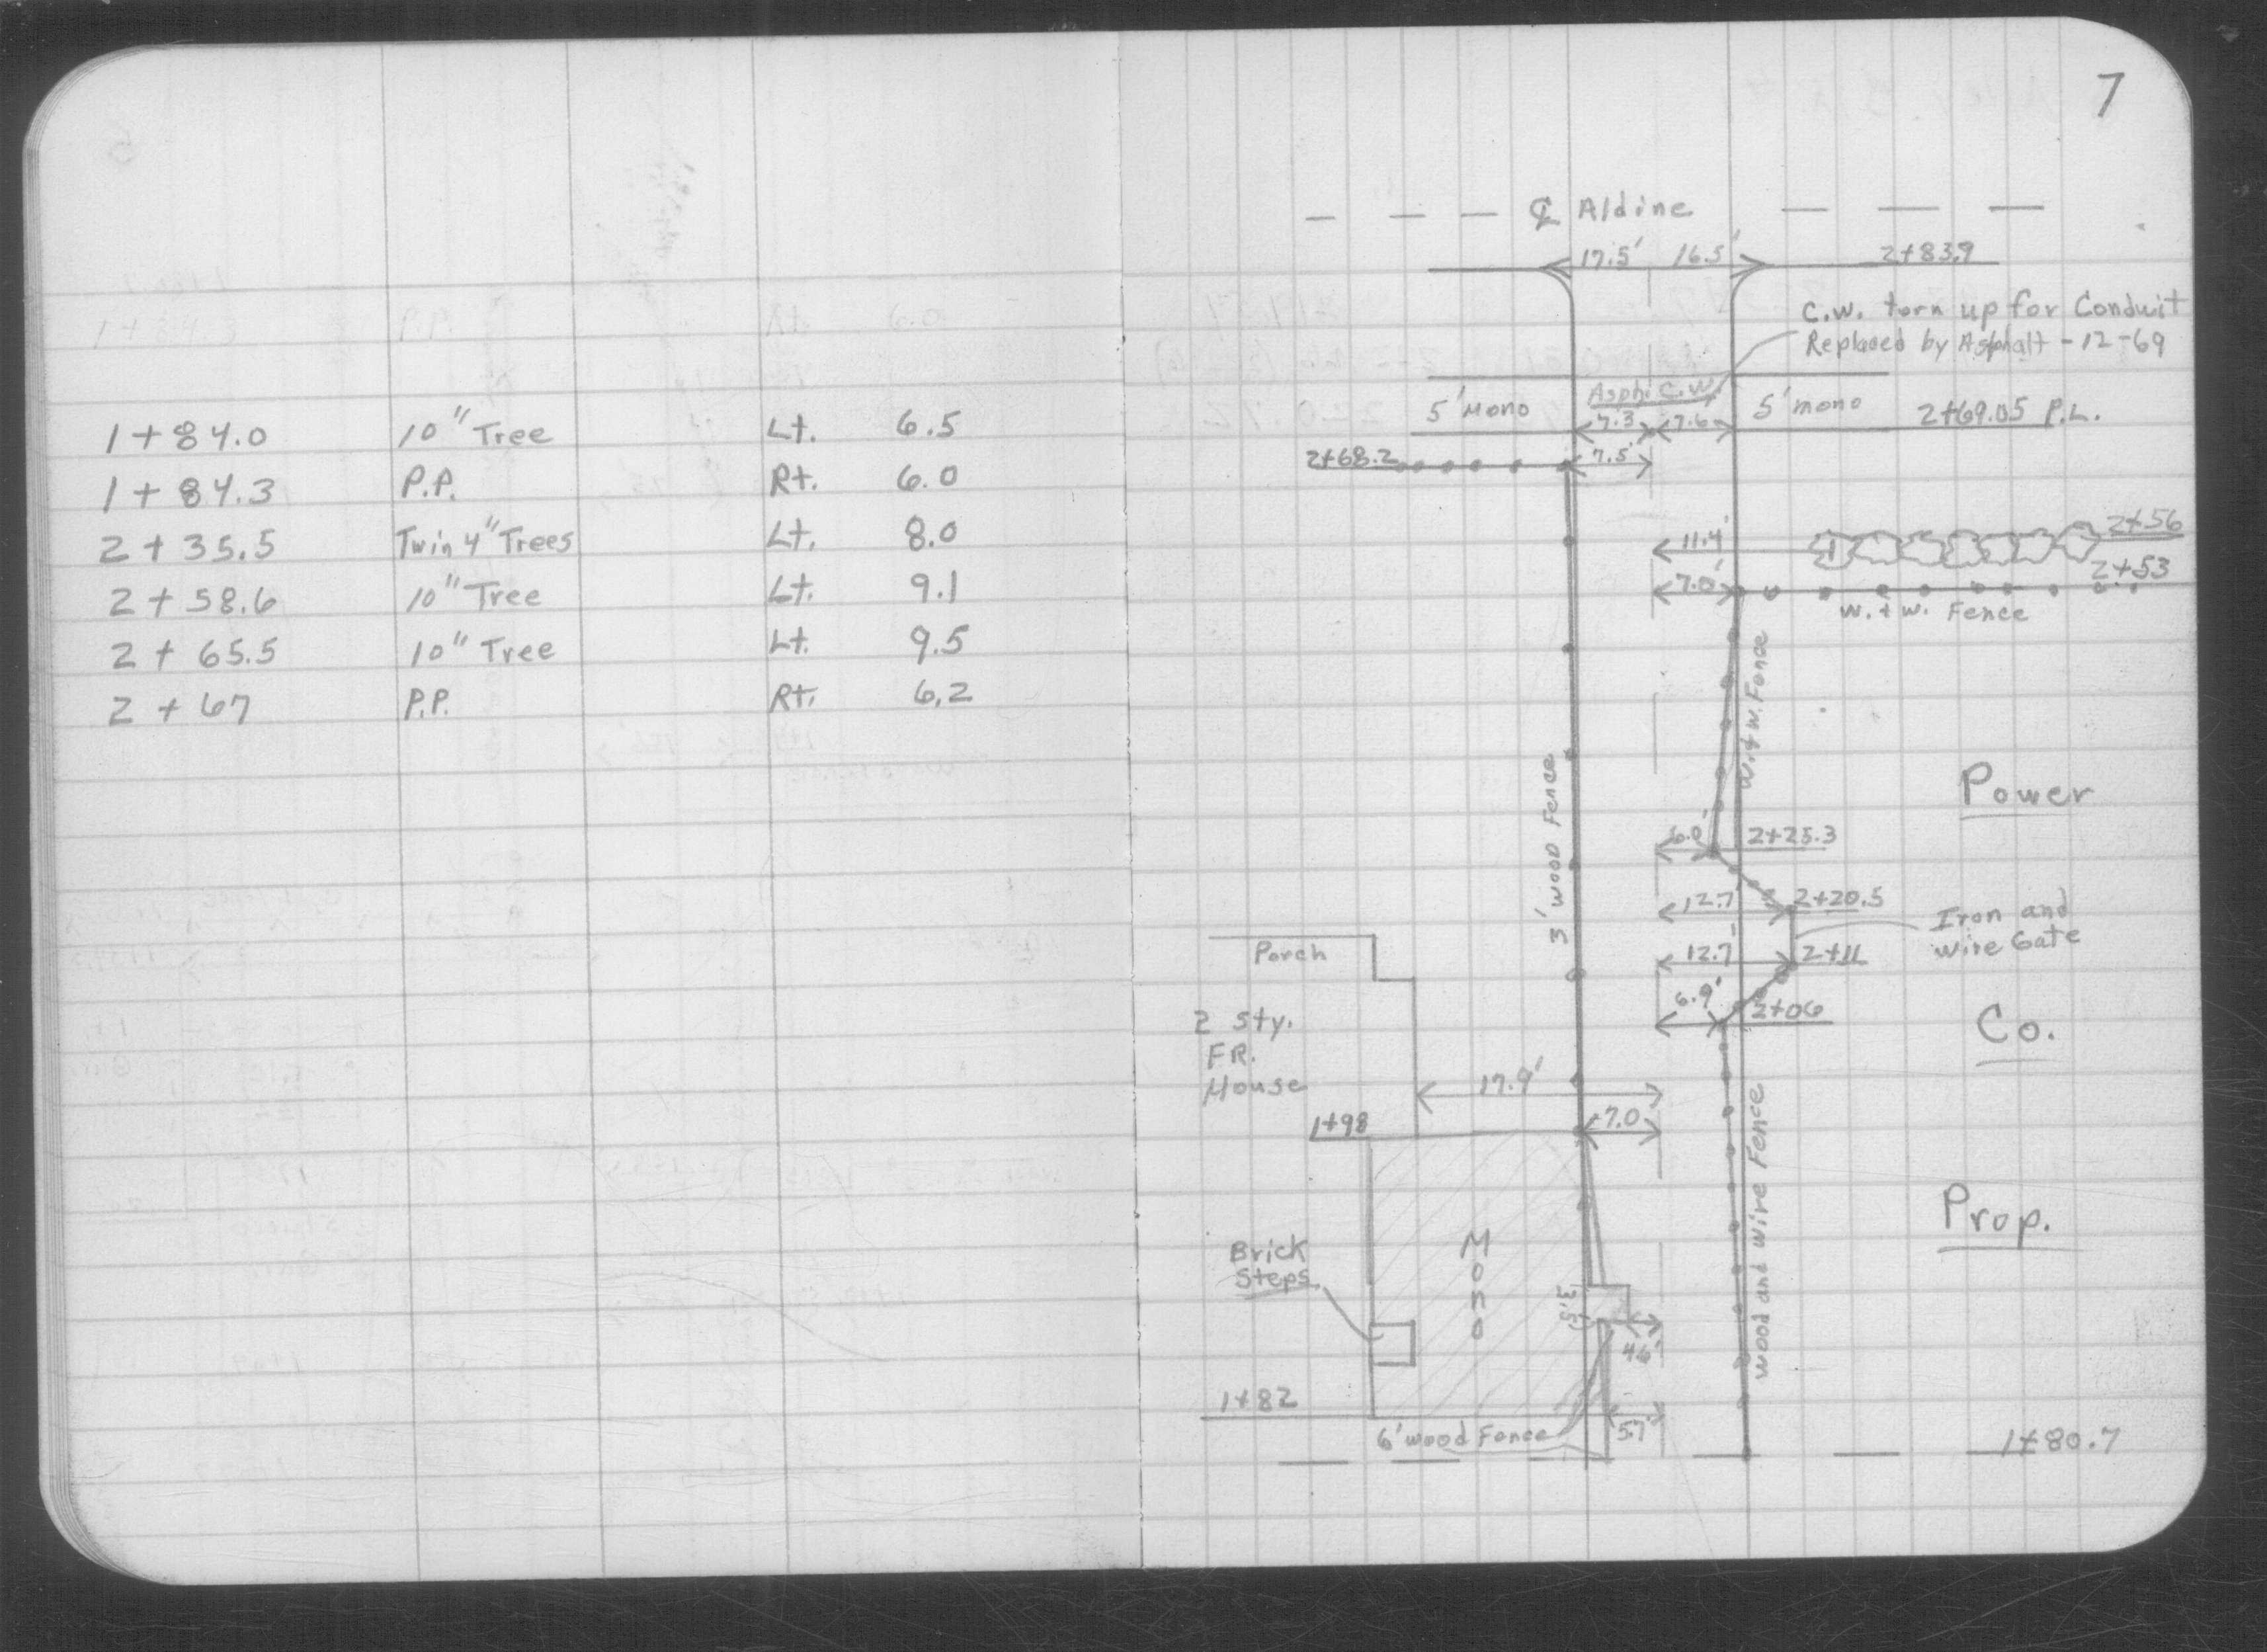 7
1+84.0 10" Tree Lt. 6.5
1+84.3 P.P. Rt. 6.0
2+35.5 Twin 4" Trees Lt. 8.0
2+58.6 10" Tree Lt. 9.1
2+65.5 10" Tree Lt. 9.5
2+67 P.P. Rt. 6.2
℄ Aldine
17.5' 16.5' 2+83.9
C.W. torn up for Conduit
Replaced by Asphalt -12-69
Asph. C.W.
5' Mono 7.3 7.6 5' mono 2+69.05 P.L.
2+68.2 7.5
11.4' 2+56
7.0' 2+53
W.+W. Fence
W.+W. Fence
3' wood Fence
Power
6.0' 2+25.3
12.7' 2+20.5
Iron and
wire Gate
Porch 12.7 2+11
6.9' 2+06
2 Sty.
FR.
House
Co.
17.9'
1+98 7.0
wood and wire Fence
Prop.
Brick
Steps
Mono
3.5'
4.6'
1+82
6' wood Fence 5.7'
1+80.7